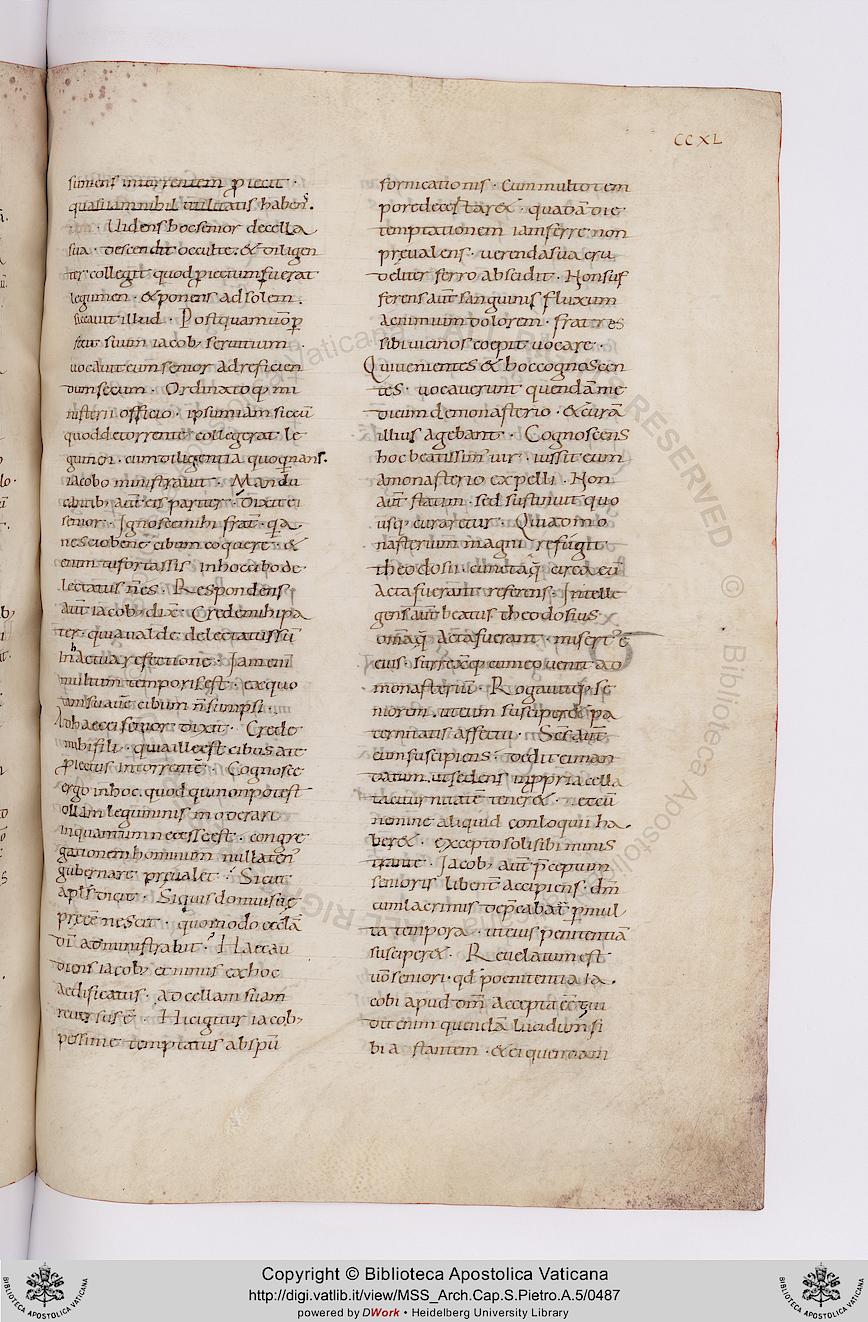 CCXL
sumens intorrentem ꝓiecit ·
quasi iam nihil utilitatis habens.
Uidens hoc senior decella
sua · descendit occulte · & diligen
ter collegit quod ꝓiectum fuerat
legumen · & ponens ad solem ·
siccauit illud · Postquam uō ꝑ
fecit suum iacob; seruitium ·
uocauit eum senior ad reficien
dum secum · Ordinatoq; mi
nisterii officio · ipsum iam siccū
quod detorrente collegerat le
gumen · cum diligentia quoq̄nans.
iacobo ministrauit · Mandu
cantib; aut̄ eis pariter · Dixit ei
senior · Ignosce mihi frat̄ · q̄a
nescio bene cibum coquere · &
cum tu fortassis in hoc cibo de
lectatus n̄ es · Respondens
aut̄ iacob; dix̄ · Crede mihi pa
ter · quia ualde delectatus sū
in hac tua refectione · Iam eni
multum temporis est · ex quo
tam suauē cibum n̄ sumpsi ·
Ad haec ei senior dixit · Crede
mihi fili · quia ille est cibus a te
ꝓiectus in torrente · Cognosce
ergo in hoc · quod qui non potest
ollam leguminis moderari
inquantum necesse est · congre
gationem hominum nullaten᾽
gubernare preualet · Sicut
apl̄s dicit · Si quis domui suę
pręēe nescit · quomodo eccl̄ā
dī administrabit · Haec au
diens iacob; et minus ex hoc
aedificatus · ad cellam suam
reuersus ē · Hic igitur iacob;
pessime temptatus ab spū
fornicationis · Cum multo tem
pore decertar& · quadā die
temptationem iam ferre non
preualens · uerenda sua cru
deliter ferro abscidit · Non suf
ferens aut̄ sanguinis fluxum
ac nimium dolorem · fratres
sibi uicinos coepit uocare ·
Qui uenientes & hoc cognoscen
tes · uocauerunt quendā me
dicum de monasterio · & curā
illius agebant · Cognoscens
hoc beatissim᾽ uir · iussit eum
a monasterio expelli · Non
aut̄ statim · sed sustinuit quo
usq; curaretur · Qui ad mo
nasterium magni refúgit
theodosii · cunctaq̄ circa eū
acta fuerant referens · Intelle
gens aut̄ beatus theodosius
om̄aq̄ acta fuerant · misert᾽ ē
eius · surrexitq; cum eo uenit ad
monasteriū · Rogauitq; se
niorem · ut eum susciper& pa
ternitatis affectu · Sc̄s aut̄
eum suscipiens · dedit ei man
datum · ut sedens in ꝓpria cella
taciturnitatē tener& · nec cū
nemine aliquid conloquii ha
ber& · excepto soli sibi minis
trante · Iacob; aut̄ p̄ceptum
senioris libent̄ accipiens · dn̄m
cum lacrimis dep̄cabat᾽ ꝑ mul
ta tempora · ut eius penitentiā
susciper& · Reuelatum est
uō seniori · qd̄ poenitentia ia
cobi apud dn̄m accepta eēt · ui
dit enim quendā lucidum si
bi a stantem · & ei quendam
Copyright © Biblioteca Apostolica Vaticana
http://digi.vatlib.it/view/MSS_Arch.Cap.S.Pietro.A.5/0487
powered by DWork • Heidelberg University Library